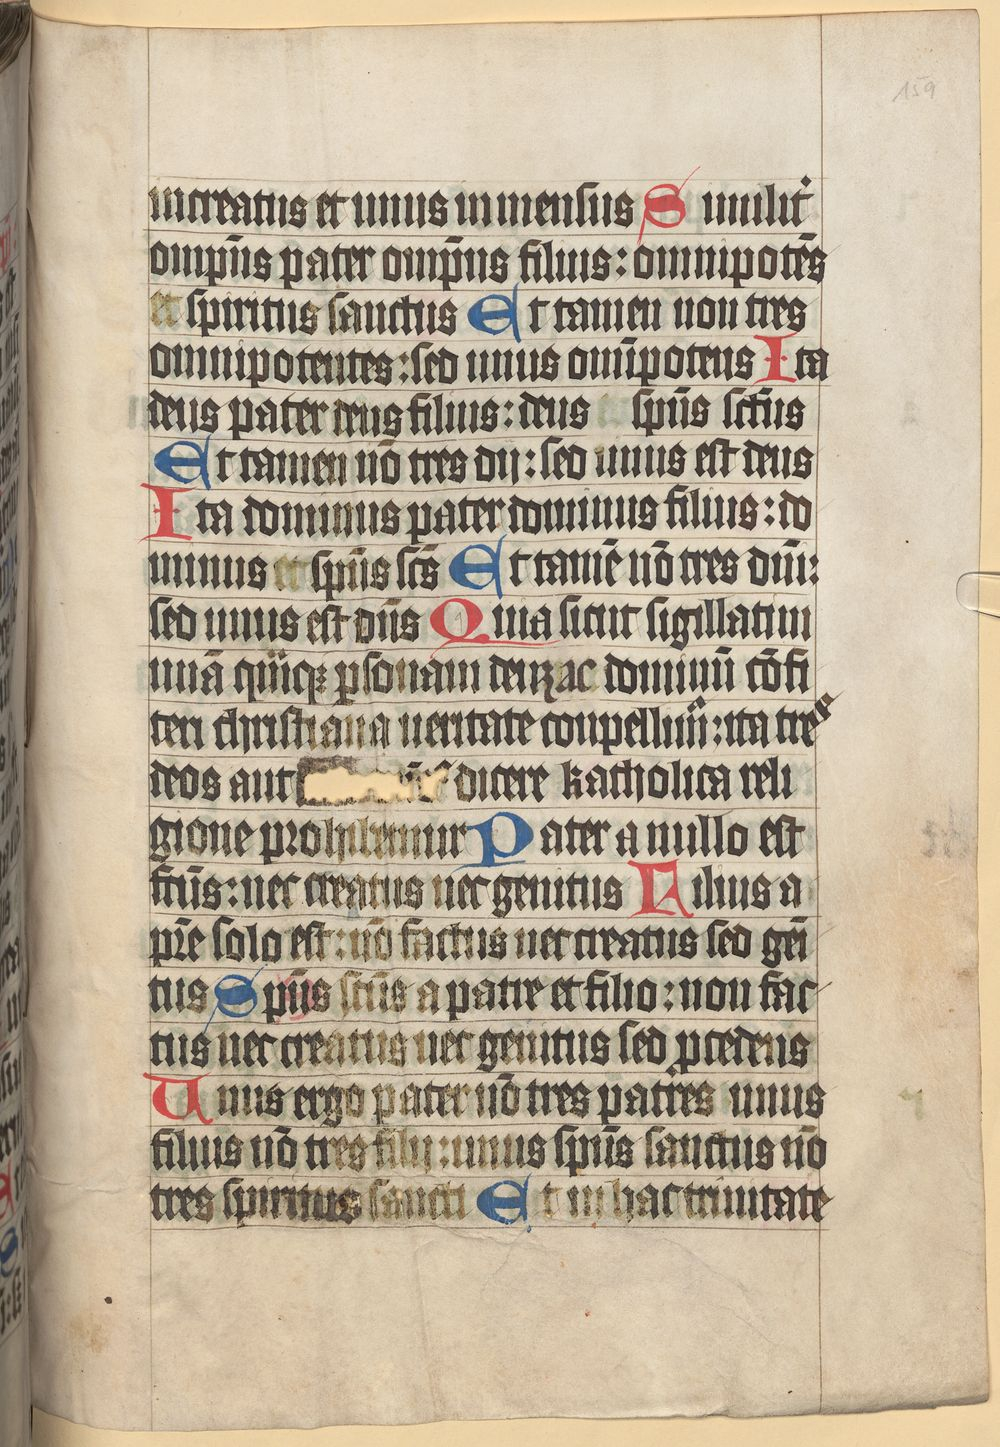 159
increatus et unus inmensus Similit᷑
omp̄ns pater omp̄ns filius: omnipotēs
et spiritus sanctus Et tamen non tres
omnipotentes: sed unus om̄ipotens Ita
deus pater deus filius: deus sp̄us sct̄us
Et tamen nō tres dij: sed unus est deus
Ita dominus pater dominus filius: do
minus et sp̄us sc̄s Et tamē nō tres dn̄i:
sed unus est dn̄s Quia sicut sigillatim
unā quāqꝫ ꝑsonam deuꝫ ac dominū cōfi
teri christiana ueritate conpellim᷑: ita tres
deos aut dicere katholica reli
gione prohibemur Pater a nullo est
fct̄us: nec creatus nec genitus Filius a
pr̄e solo est: nō factus nec creatus sed geni
tus Sp̄us sct̄us a patre et filio: non fac
tus nec creatus nec genitus sed ꝓcedens
Unus ergo pater nō tres patres unus
filius nō tres filij: unus sp̄us sanctus nō
tres spiritus sancti Et in hac trinitate